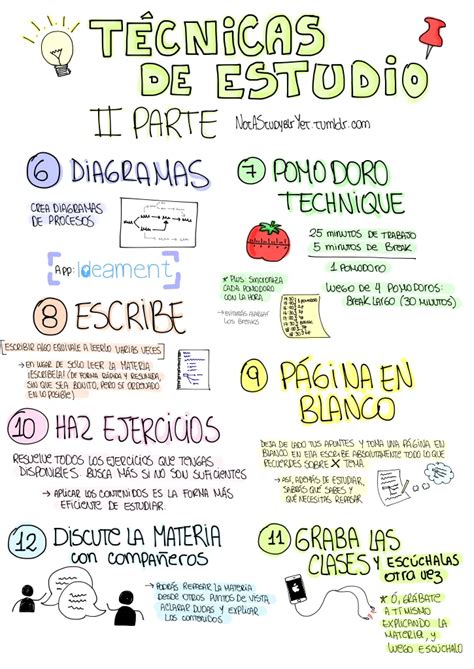 TÉCNICAS
DE ESTUDIO
II PARTE
NotAStudyblrYet.tumblr.com
6 DIAGRAMAS
CREA DIAGRAMAS
DE PROCESOS
App: Ideament
7 POMODORO
TECHNIQUE
25 MINUTOS DE TRABAJO
5 MINUTOS DE BREAK
1 POMODORO
LUEGO DE 4 POMODOROS:
BREAK LARGO (30 MINUTOS)
* PLUS: SINCRONIZA
CADA POMODORO
CON LA HORA
LOS BREAKS
8 ESCRIBE
ESCRIBIR ALGO EQUIVALE A LEERLO VARIAS VECES
→ EN LUGAR DE SOLO LEER LA MATERIA
¡ESCRÍBELA! (DE FORMA RÁPIDA Y RESUMIDA,
SIN QUE SEA BONITO, PERO SÍ ORDENADO
EN LO POSIBLE)
9 PÁGINA EN
BLANCO
DEJA DE LADO TUS APUNTES Y TOMA UNA PÁGINA EN
BLANCO EN ELLA ESCRIBE ABSOLUTAMENTE TODO LO QUE
RECUERDES SOBRE X TEMA
→ ASÍ, ADEMÁS DE ESTUDIAR,
SABRÁS QUE SABES Y
QUÉ NECESITAS REPASAR
10 HAZ EJERCICIOS
RESUELVE TODOS LOS EJERCICIOS QUE TENGAS
DISPONIBLES. BUSCA MÁS SI NO SON SUFICIENTES
→ APLICAR LOS CONTENIDOS ES LA FORMA MÁS
EFICIENTE DE ESTUDIAR.
12 DISCUTE LA MATERIA
con compañeros
→ PODRÁS REPASAR LA MATERIA
DESDE OTROS PUNTOS DE VISTA,
ACLARAR DUDAS Y EXPLICAR
LOS CONTENIDOS
11 GRABA LAS
CLASES Y ESCÚCHALAS
OTRA VEZ
* Ó, GRÁBATE
A TI MISMO
EXPLICANDO LA
MATERIA, Y
LUEGO ESCÚCHALO